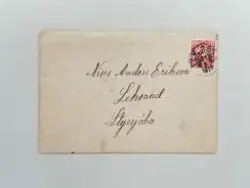 Nims Anders Erikson
Leksand
Styrsjöbo